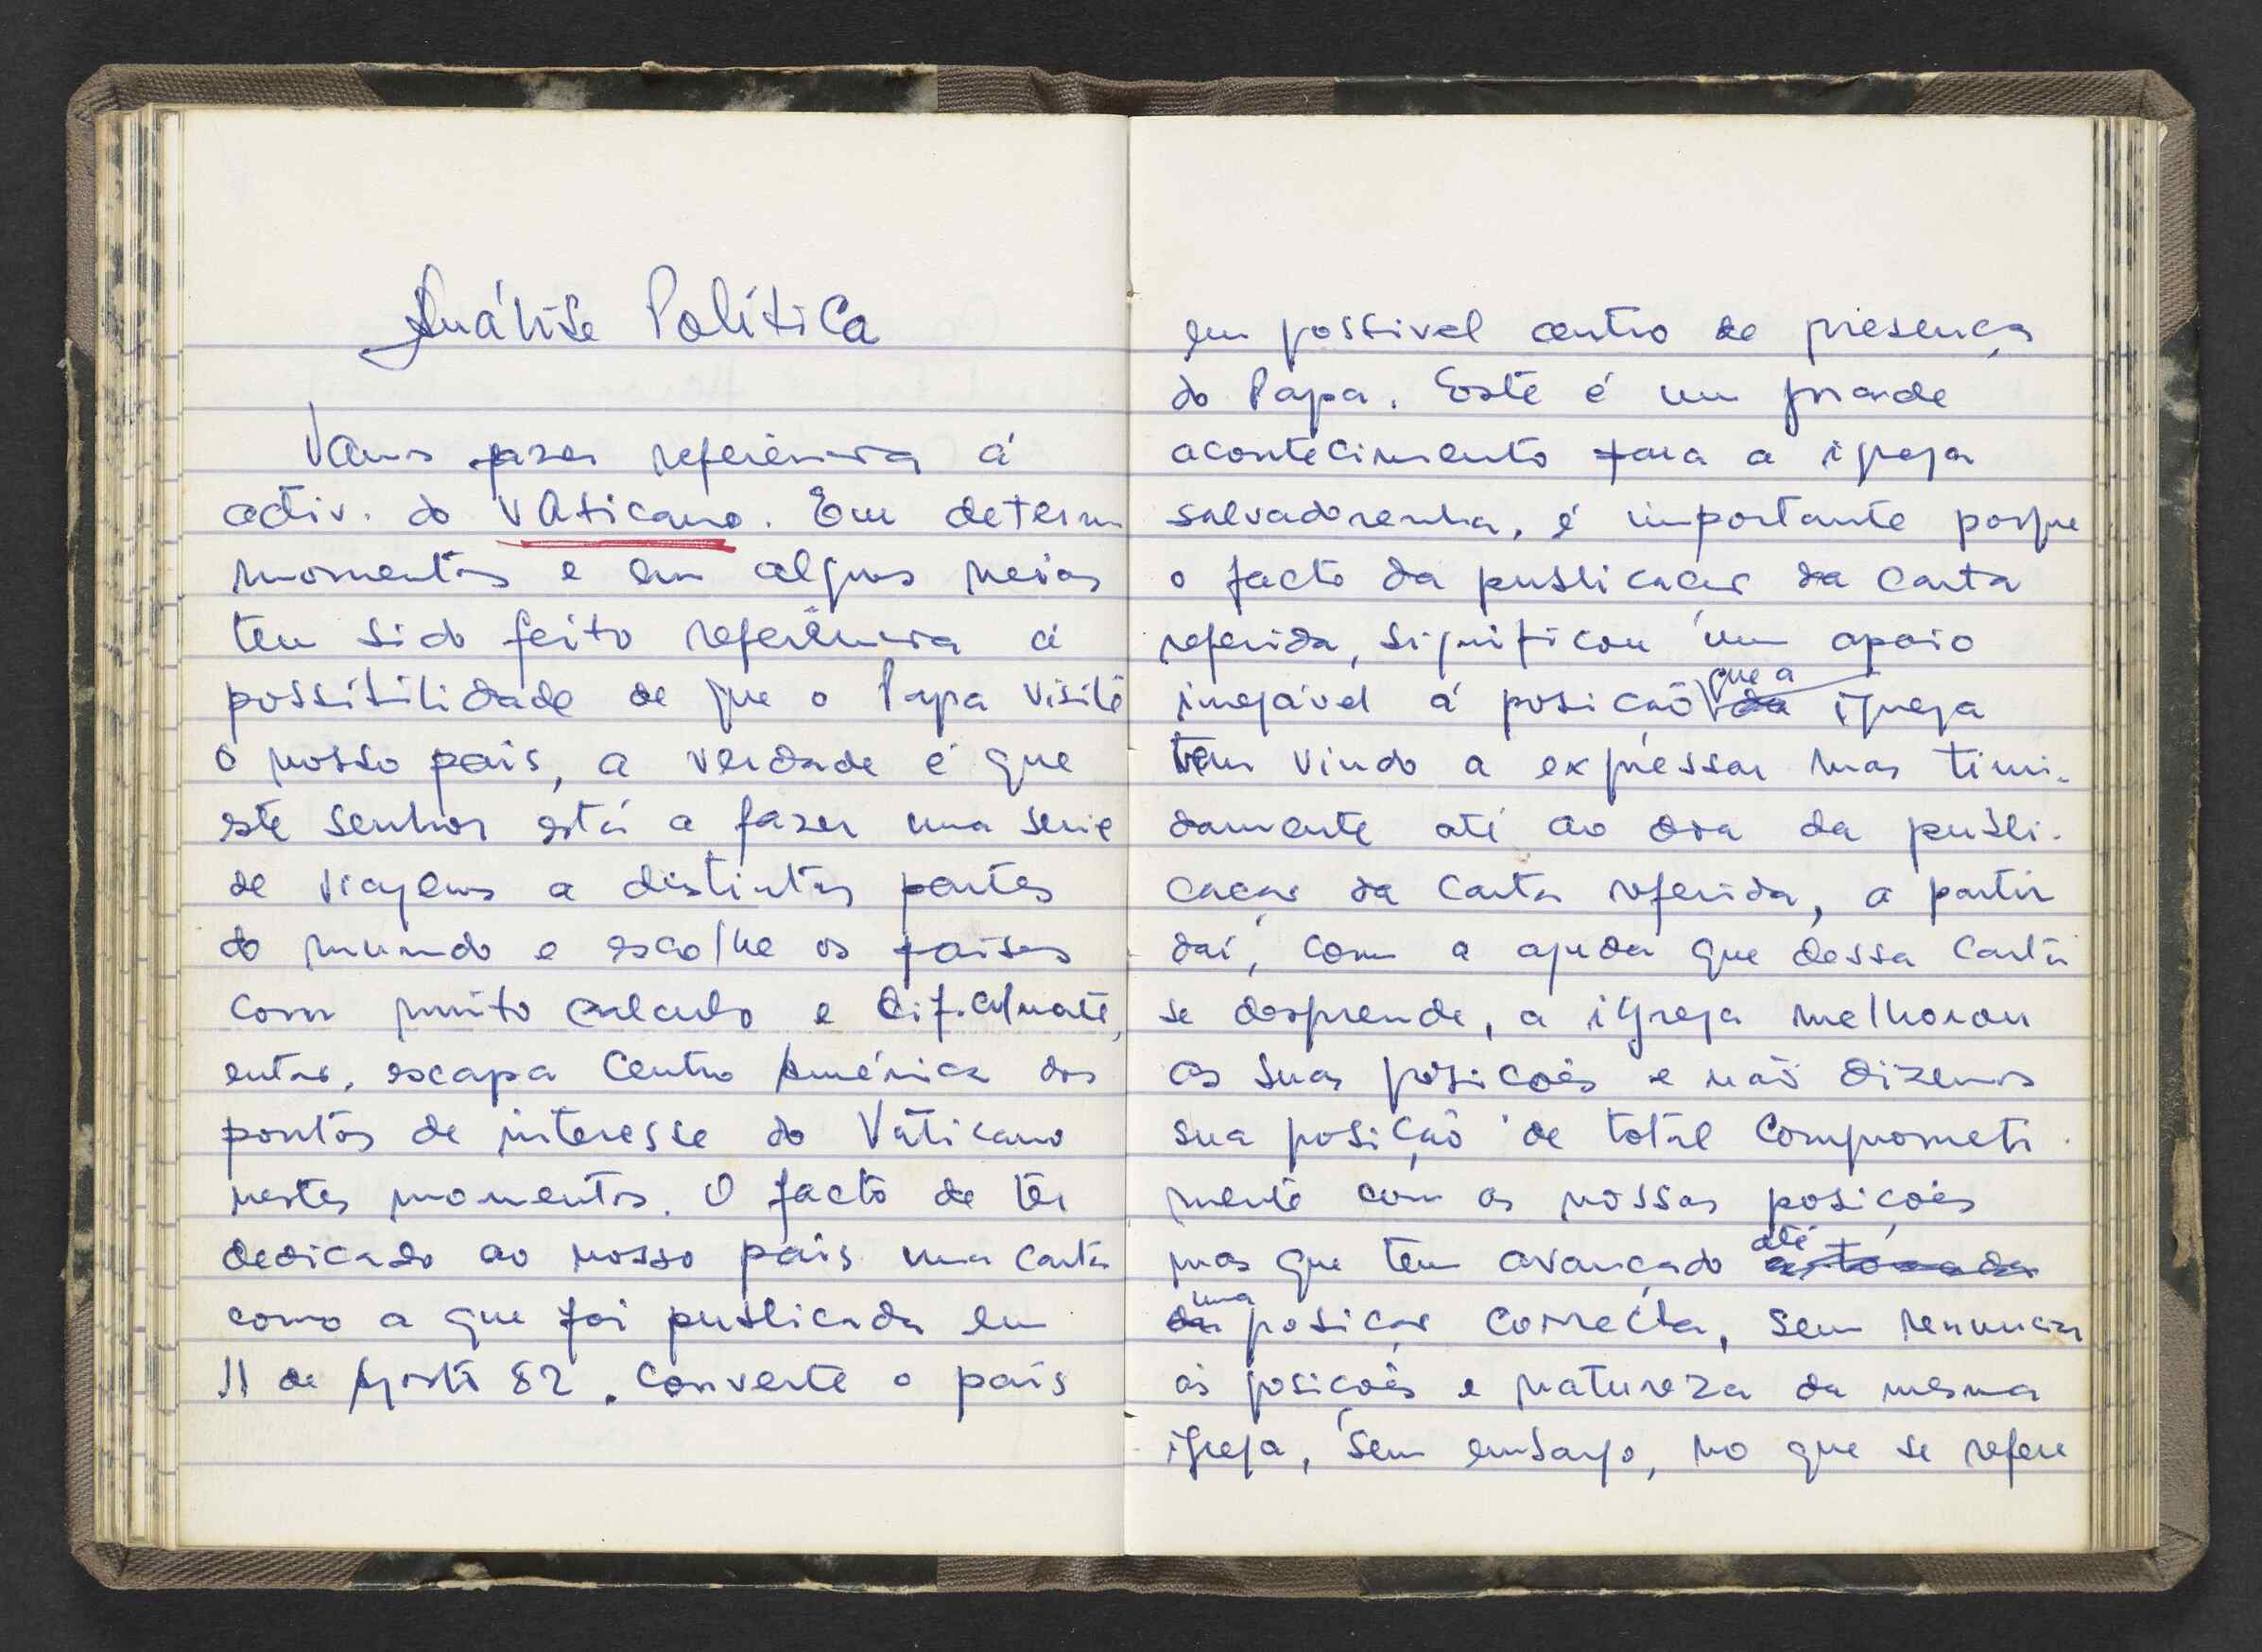 Análise Política
Vamos fazer referência á
activ. do Vaticano. Em determ
momentos e em alguns meios
tem sido feito referência á
possibilidade de que o Papa visite
o nosso país, a verdade é que
este senhor está a fazer uma serie
de viagens a distintas partes
do mundo e escolhe os países
com muito calculo e dificilmente,
entao, escapa Centro América dos
pontos de interesse do Vaticano
nestes momentos. O facto de ter
dedicado ao nosso país uma carta
como a que foi publicada em
11 de Agosto 82. Converte o país
em possivel centro de presença
do Papa. Este é um grande
acontecimento para a igreja
salvadorenha, é importante porque
o facto da publicaçao da carta
referida, significou um apoio
inegável á posição que a da igreja
tem vindo a expressar mas timi-
damente até ao dia da publi-
caçao da carta referida, a partir
daí, com a ajuda que dessa carta
se desprende, a igreja melhorou
as suas posições e não dizemos
sua posição de total comprometi
mente com as nossas posições
mas que tem avançado até
uma posiçao correcta, sem renunciar
ás posições e natureza da mesma
igreja, sem embargo, no que se refere